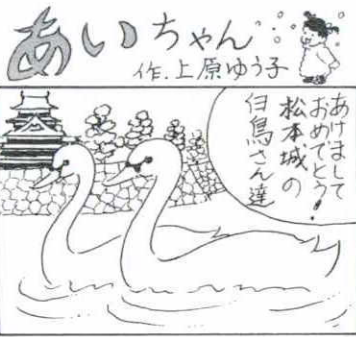 あいちゃん
作.上原ゆう子
あけまして
おめでとう!
松本城の
白鳥さん達